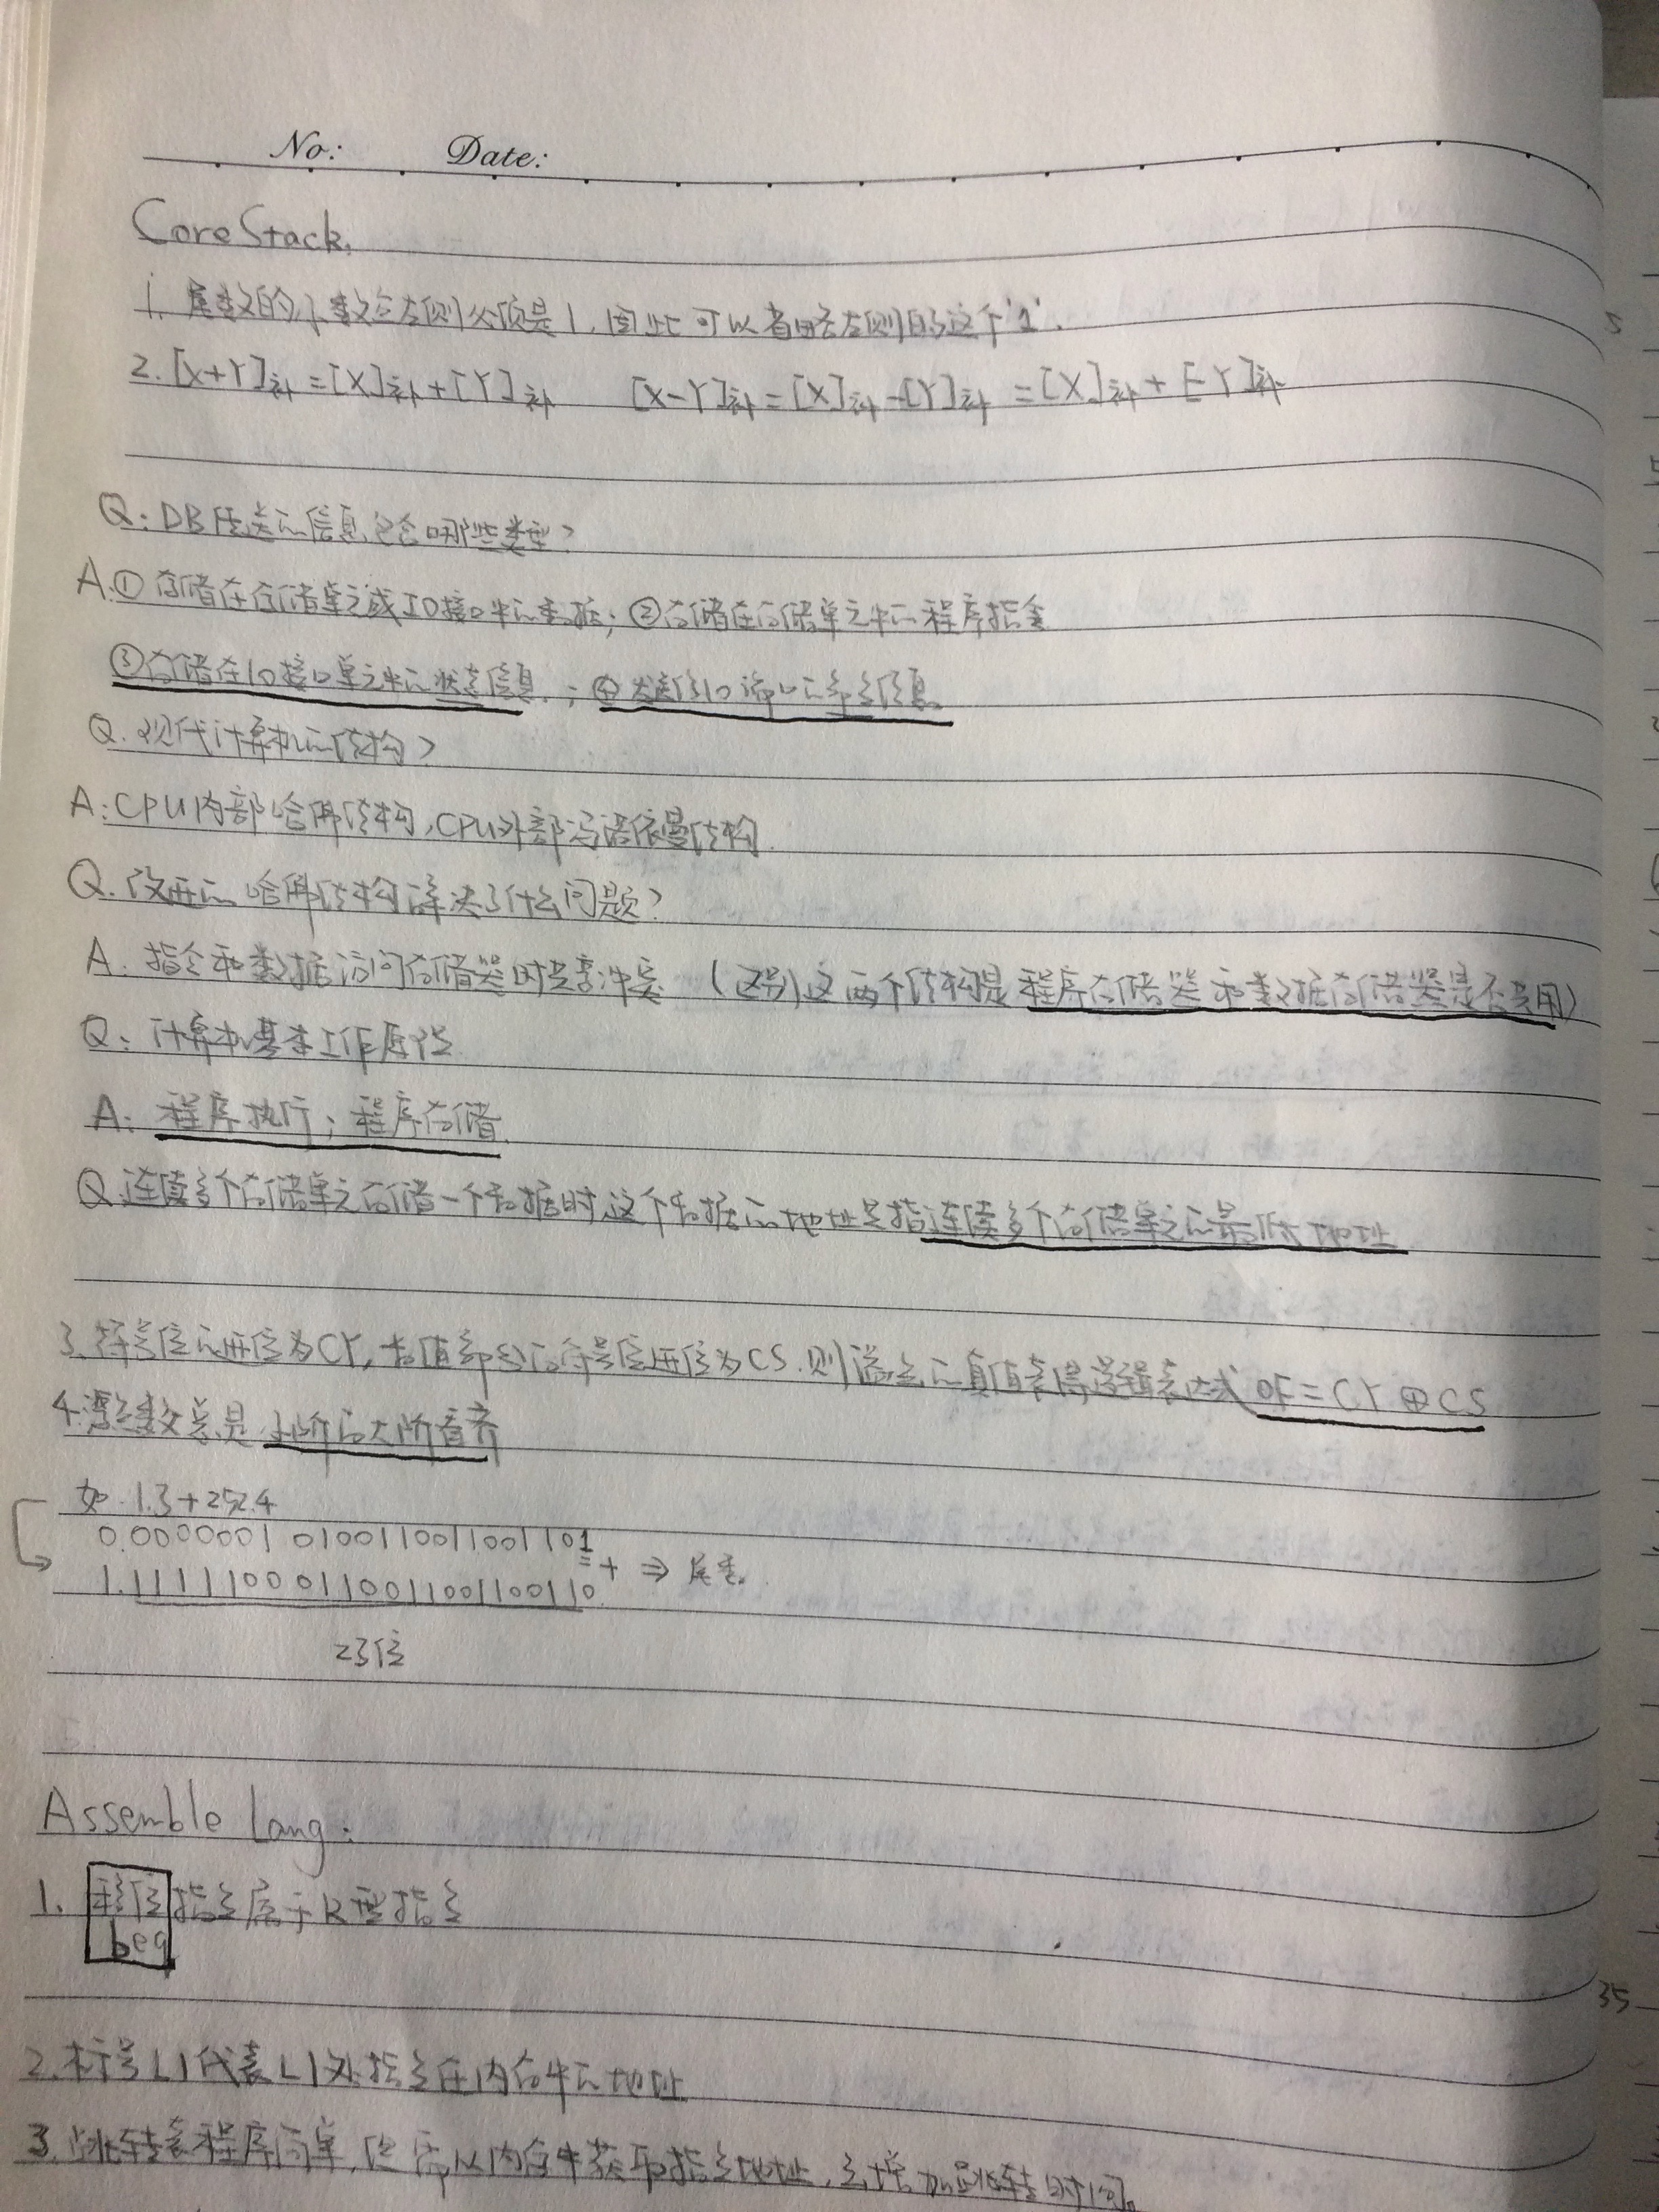 No: Date:
Core Stack.
1. 尾数的小数点左侧必须是1,因此可以省略左侧的这个'1'.
2. [X+Y]补=[X]补+[Y]补 [X-Y]补=[X]补-[Y]补=[X]补+[-Y]补
Q:DB传送的信息包含哪些类型?
A:①存储在存储单元或IO接口中的数据;②存储在存储单元中的程序指令
③存储在IO接口单元中的状态信息.;④发送给IO端口的命令信息.
Q.现代计算机的结构?
A:CPU内部哈佛结构,CPU外部冯诺依曼结构.
Q.改进的哈佛结构解决了什么问题?
A.指令和数据访问存储器时共享冲突 (区别这两个结构是程序存储器和数据存储器是否共用)
Q:计算机基本工作原理.
A:程序执行;程序存储.
Q.连续多个存储单元存储一个数据时,这个数据的地址是指连续多个存储单元的最低地址
3.符号位的进位为CY,数值部分的符号位进位为CS.则溢出的真值表得逻辑表达式OF=CY⊕CS
4.浮点数总是小阶向大阶看齐
如.1.3+252.4
0.0000001 0100110011001101
1.11111000110011001100110 + ⇒ 尾数.
23位
Assemble Lang.
1. 移位指令属于R型指令
beq
2.标号L1代表L1处指令在内存中的地址
3.跳转表程序简单,但需从内存中获取指令地址,会增加跳转时间。
5
35